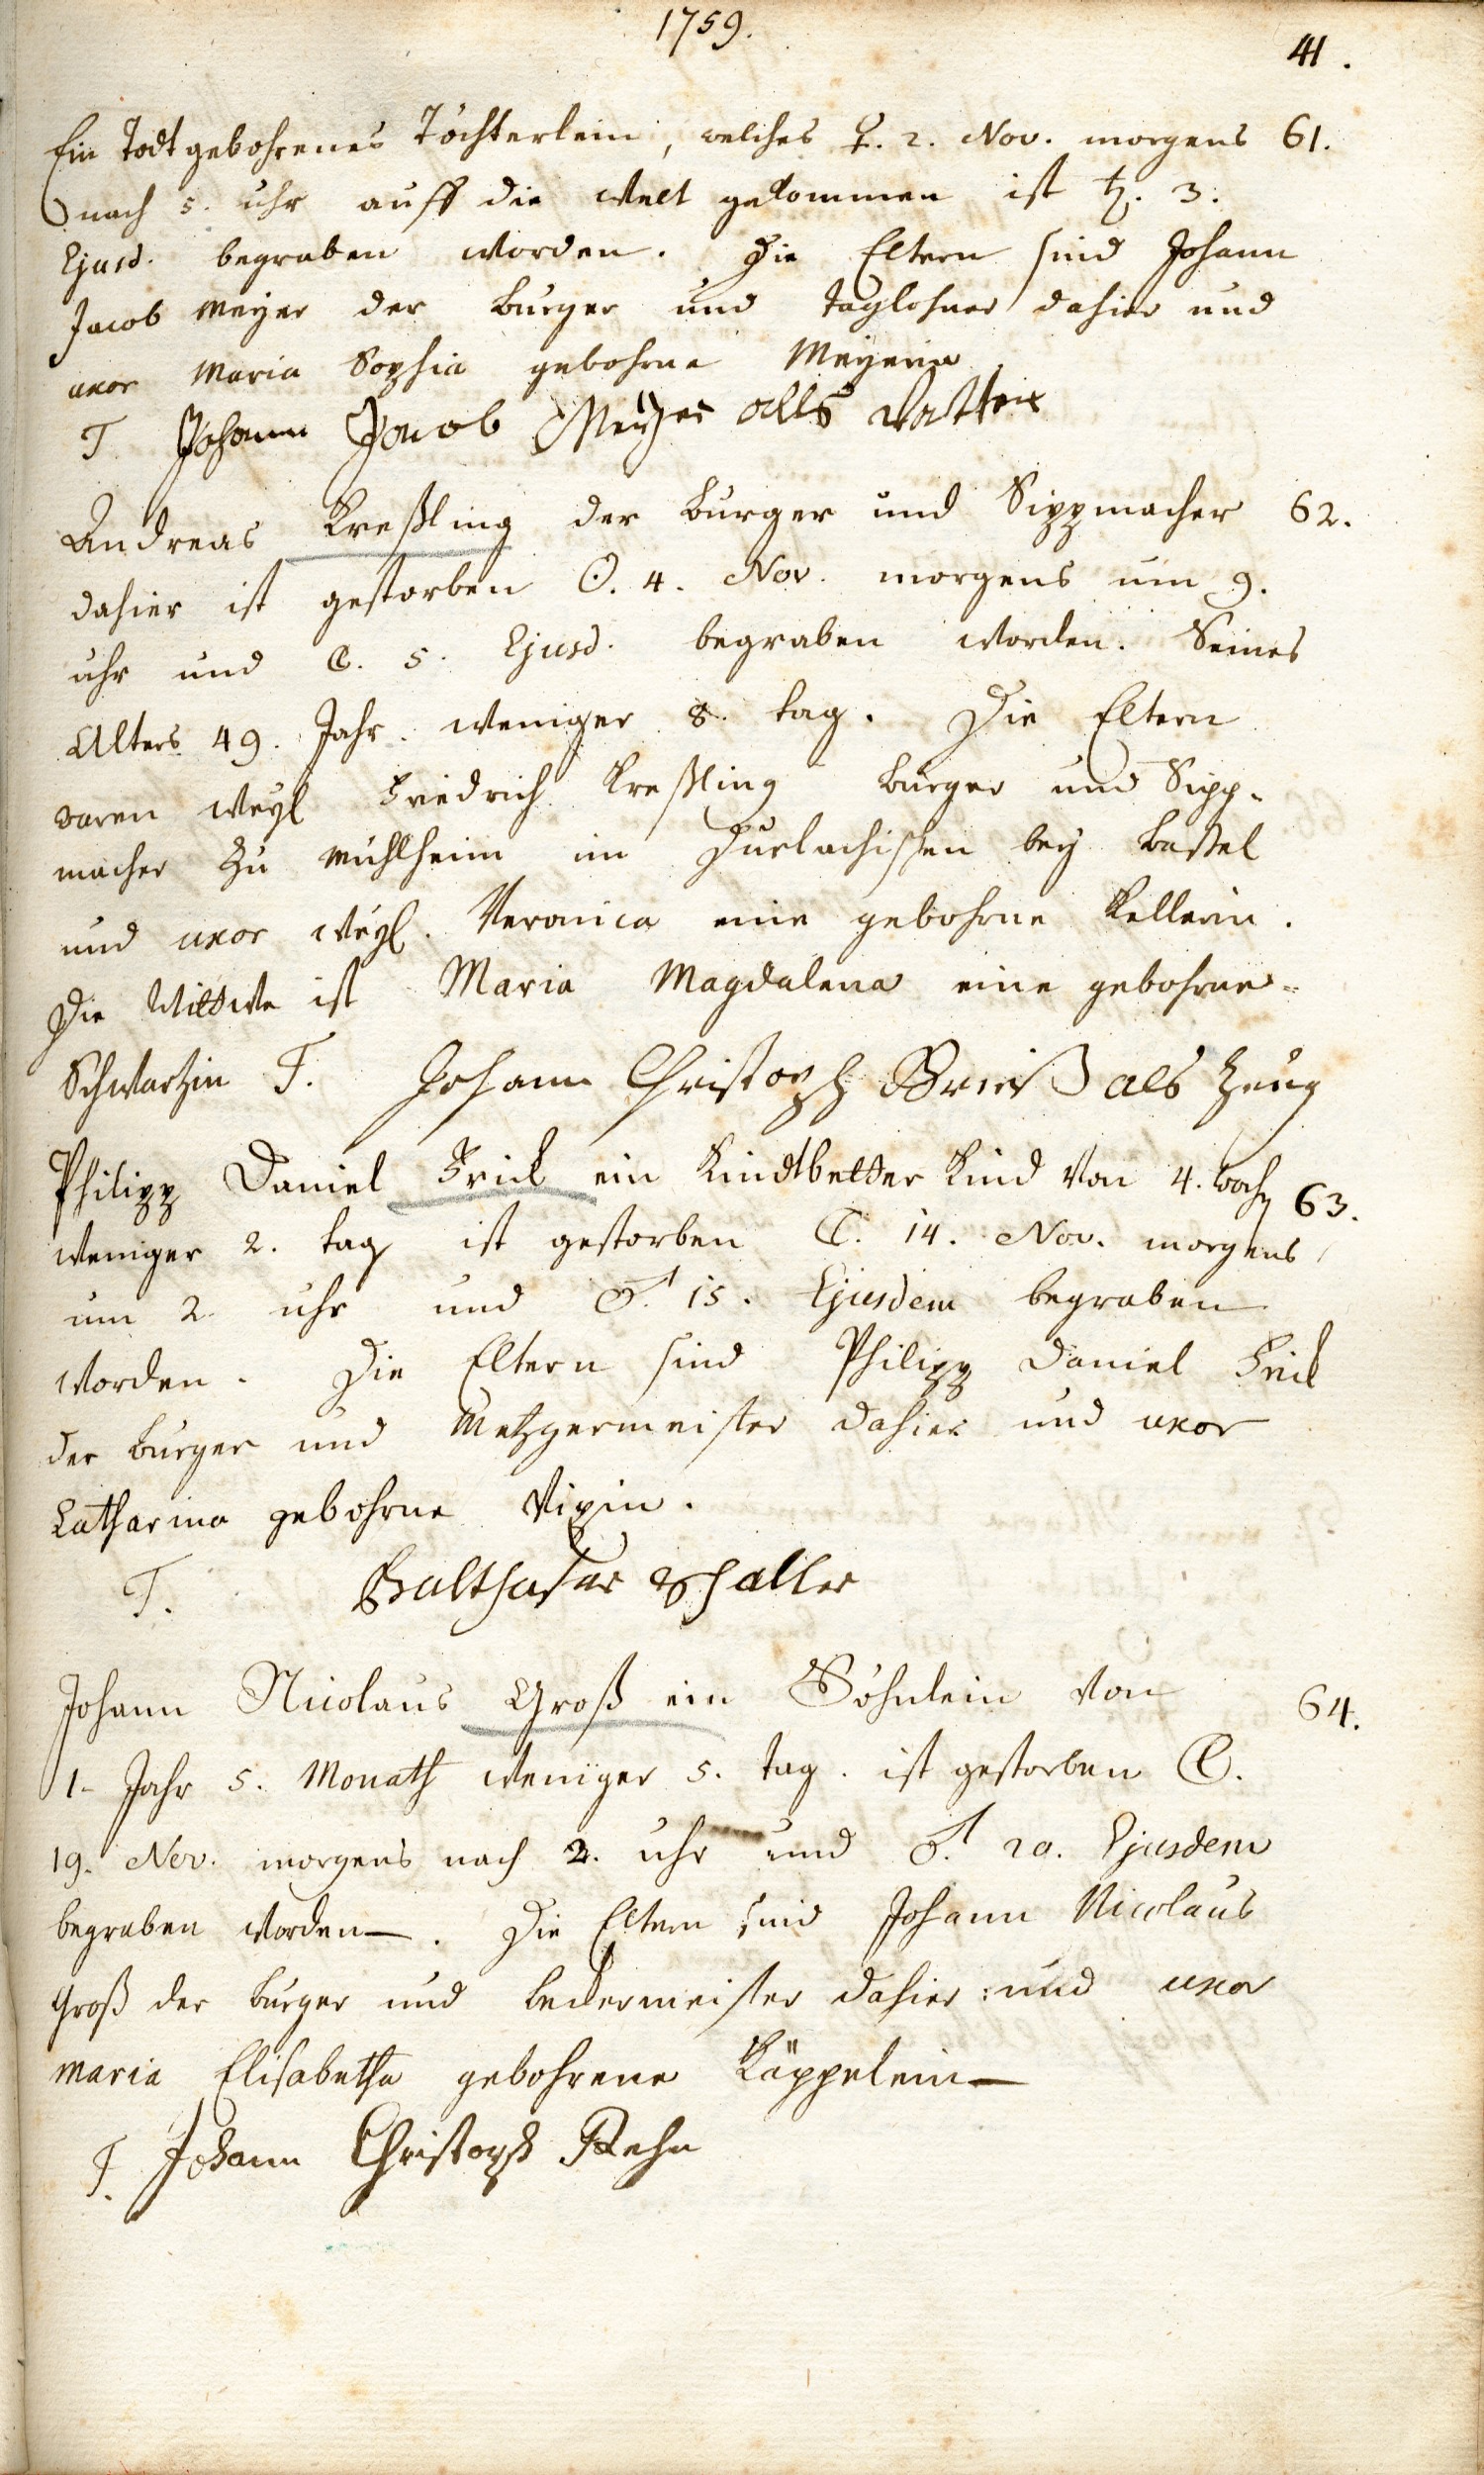 1759.
41.
Ein Todtgebohrenes Töchterlein, welches ♀. 2. Nov. morgens 61.
nach 5. uhr auff die Welt gekommen ist ♄. 3.
Ejusd. begraben worden. Die Eltern sind Johann
Jacob Meyer der Burger und Taglohner dahier und
uxor Maria Sophia gebohrne Meyerin
T. Johann Jacob Meyer alls Vatter
Andreas Kreßling der Burger und Sippmacher 62.
dahier ist gestorben ☉. 4. Nov. morgens um 9.
uhr und ☾. 5. Ejusd. begraben worden. Seines
Alters 49. Jahr weniger 8. tag. Die Eltern
waren weyl Friedrich Kreßling Burger und Sipp-
macher zu Mühlheim im Durlachischen bey Bassel
und uxor weyl. Veronica eine gebohrne Kellerin.
Die Wittwe ist Maria Magdalena eine gebohrne
Schwartzin T. Johann Christoph als Zeug
Philipp Daniel Frick ein Kindtbetter Kind von 4. woch 63.
weniger 2. tag ist gestorben ☾. 14. Nov. morgens
um 2. uhr und ♂. 15. Ejusdem begraben
worden. Die Eltern sind Philipp Daniel Frick
der Burger und Metzgermeister dahier und uxor
Catharina gebohrne
T. Balthasar Schaller
Johann Nicolaus Groß ein Söhnlein von 64.
1. Jahr 5. Monath weniger 5. tag. ist gestorben ☾.
19. Nov. morgens nach 2. uhr und ♂. 20. Ejusdem
begraben worden. Die Eltern sind Johann Nicolaus
Groß der Burger und Ledermeister dahier und uxor
Maria Elisabetha gebohrene Käppelein
T. Johann Christoph Rehn